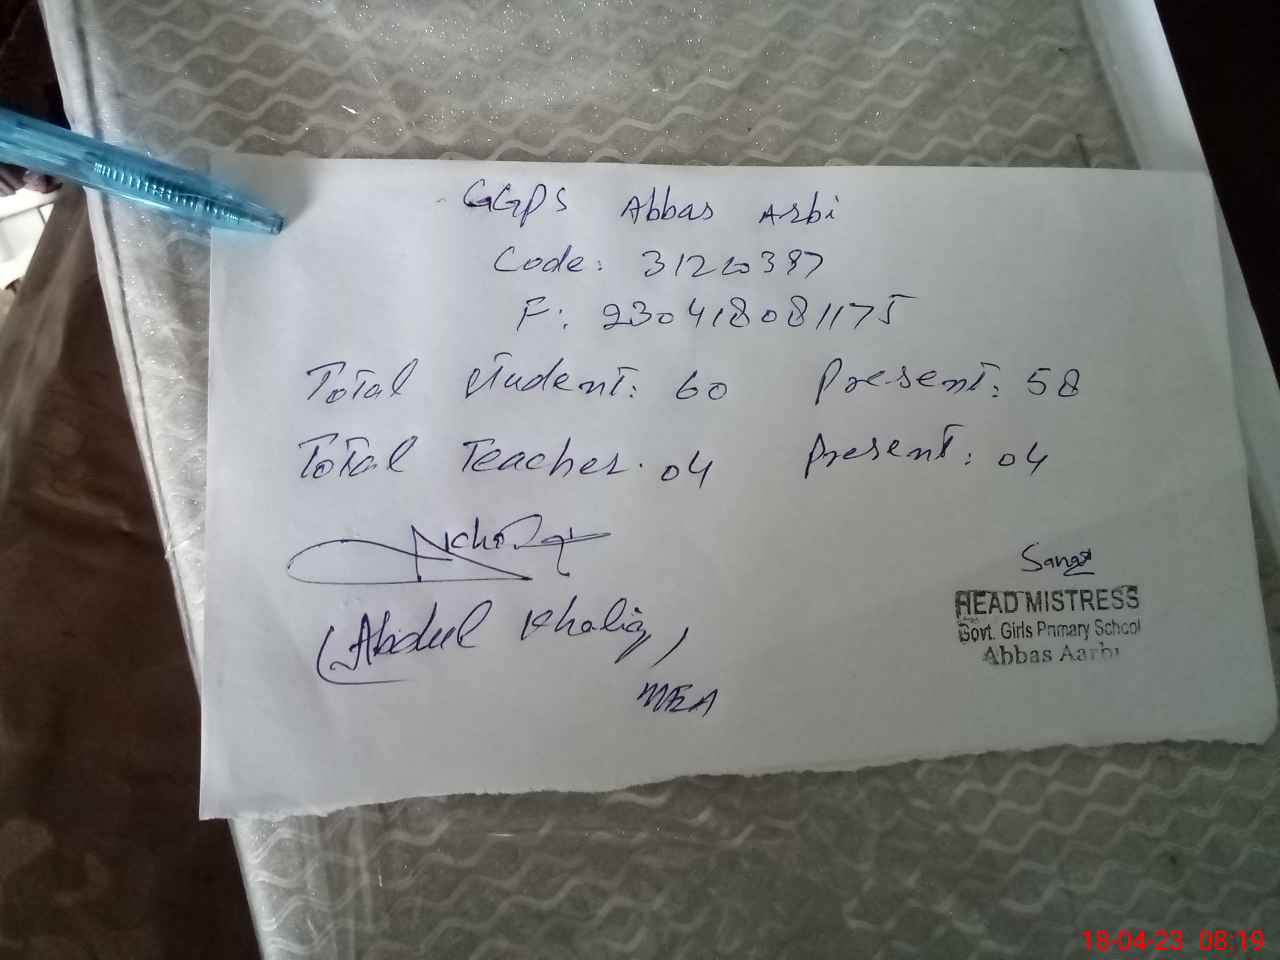 GGPS Abbas Arbi
Code: 31220387
F: 230418081175
Total student: 60 Present: 58
Total Teacher. 04 Present: 04
(Abdul Khaliq)
MEA
HEAD MISTRESS
Govt. Girls Primary School
Abbas Aarbi
18-04-23 08:19